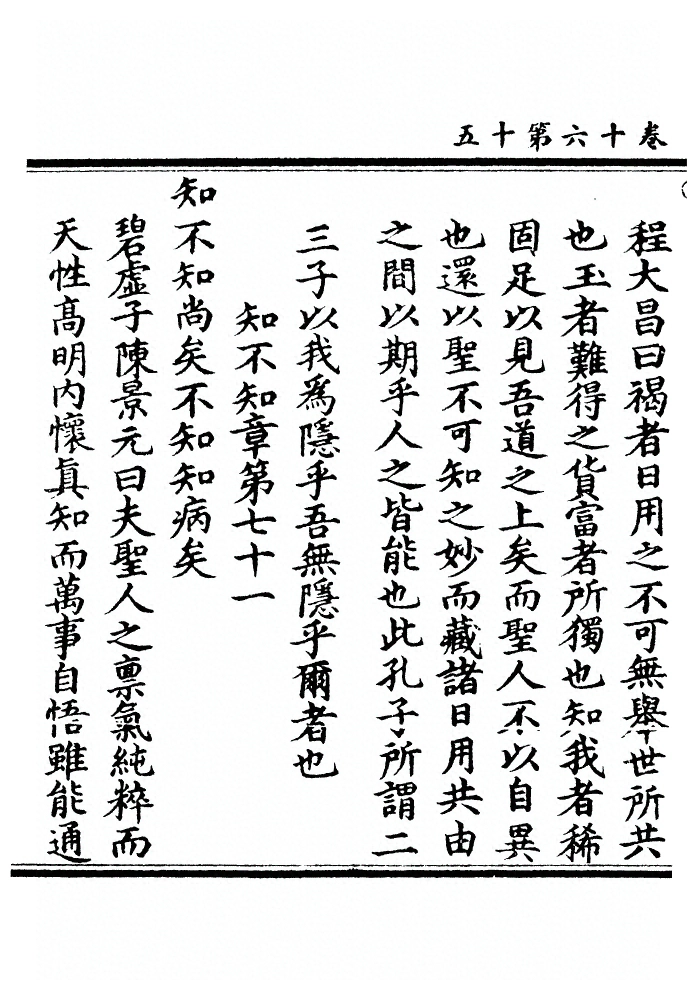 卷十六第十五
程大昌曰褐者日用之不可無舉世所共
也玉者難得之貨富者所獨也知我者稀
固足以見吾道之上矣而聖人不以自異
也還以聖不可知之妙而藏諸日用共由
之間以期乎人之皆能也此孔子所謂二
三子以我為隱乎吾無隱乎爾者也
知不知章第七十一
知不知尚矣不知知病矣
碧虛子陳景元曰夫聖人之禀氣純粹而
天性高明內懷真知而萬事自悟雖能通